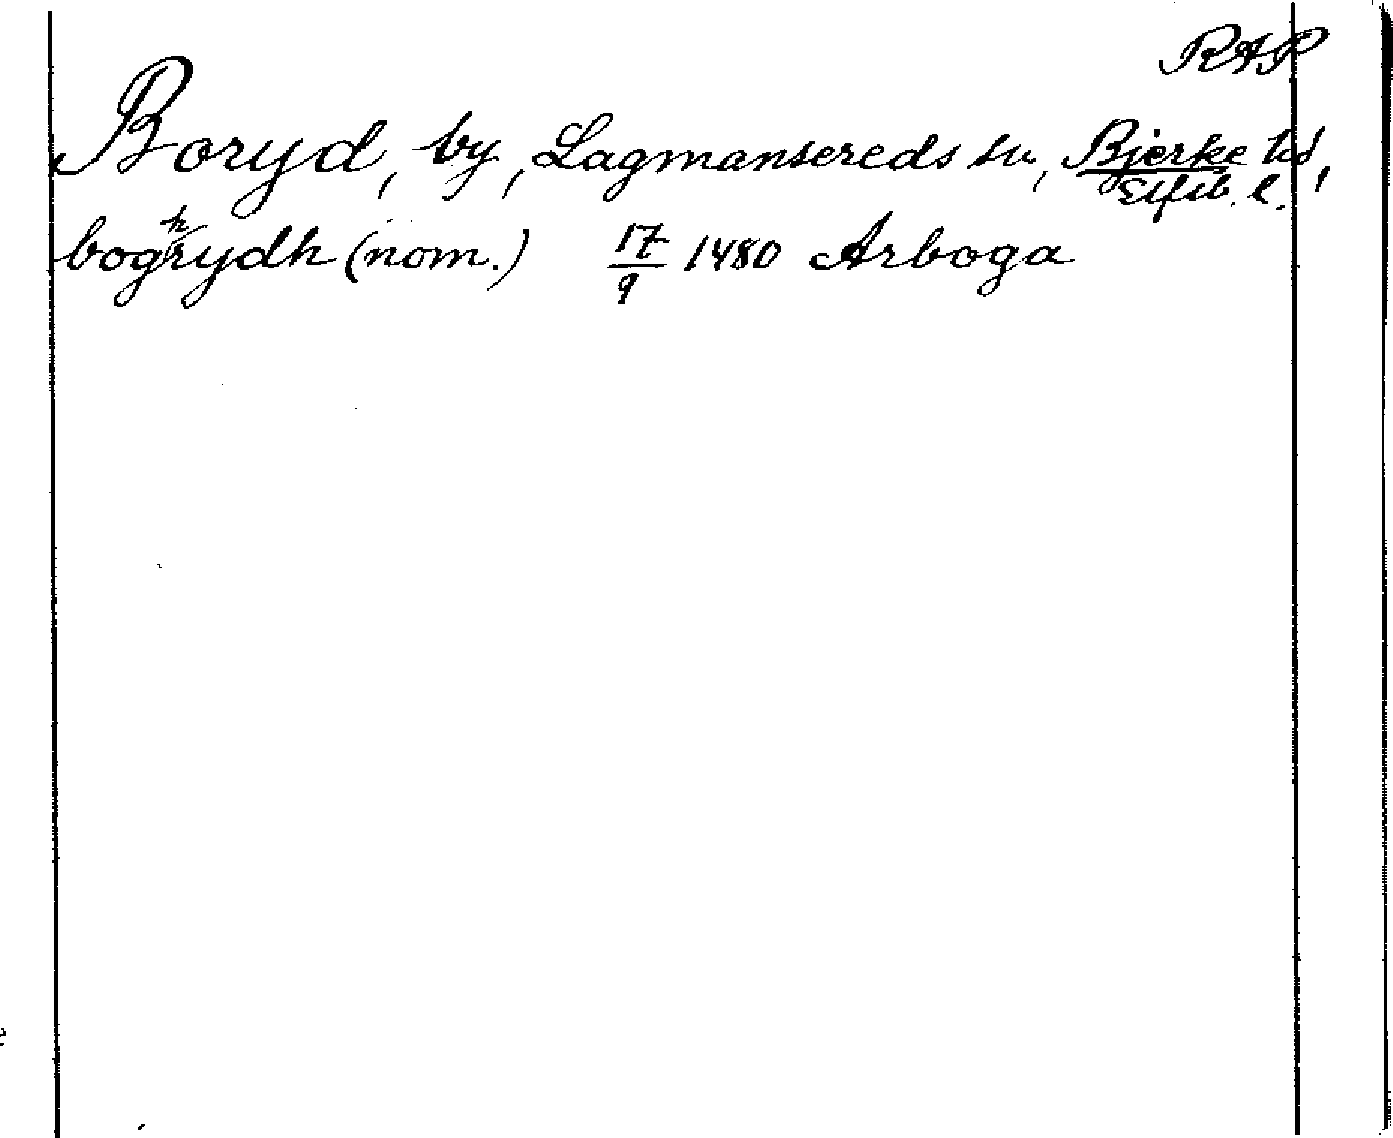 RAP
Boryd, by, Lagmansereds sn, Bjerke hd,
Elfsb. l.
boghrydh (nom.) 17/9 1480 Arboga